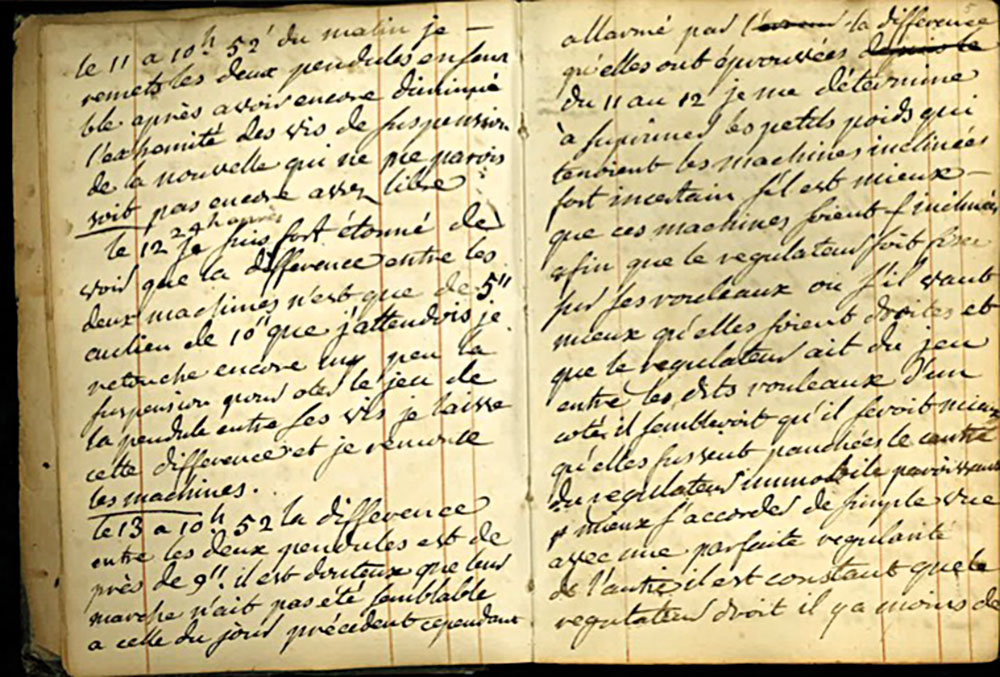 le 11 a 10h 52' du matin je —
remets les deux pendules ensem
ble après avoir encore diminué
l'extremité des vis de suspension
de la nouvelle qui ne me parois
soit pas encore assez libre
24h après
le 12 je suis fort étonné de
voir que la difference entre les
deux machines n'est que de 5"
aulieu de 10" que j'attendois je
retouche encore un peu la
suspension pour oter le jeu de
la pendule entre ses vis je laisse
cette difference et je remonte
les machines.
le 13 a 10h 52 la difference
entre les deux pendules est de
près de 9". il est douteux que leur
marche n'ait pas été semblable
a celle du jour précédent cependant
5
allarmé par la difference
qu'elles ont éprouvées depuis le
du 11 au 12 je me détermine
à suprimer les petits poids qui
tenoient les machines inclinées
fort incertain s'il est mieux —
que ces machines soient inclinées
afin que le regulateur soit fixe
sur ses rouleaux ou s'il vaut
mieux qu'elles soient droites et
que le regulateur ait du jeu
entre les dits rouleaux d'un
coté il sembleroit qu'il seroit mieux
qu'elles fussent panchées le centre
du regulateur immobile paroissant
mieux s'accorder de simple vue
avec une parfaite regularité
de l'autre il est constant que le
regulateur droit il y a moins de